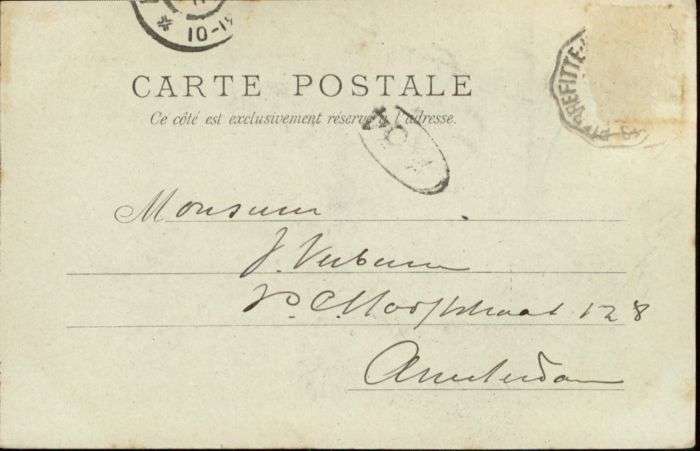 10-1
CARTE POSTALE
Ce côté est exclusivement réservé à l'adresse.
Monsieur
J.
P. C. Hooftstraat 128
Amsterdam